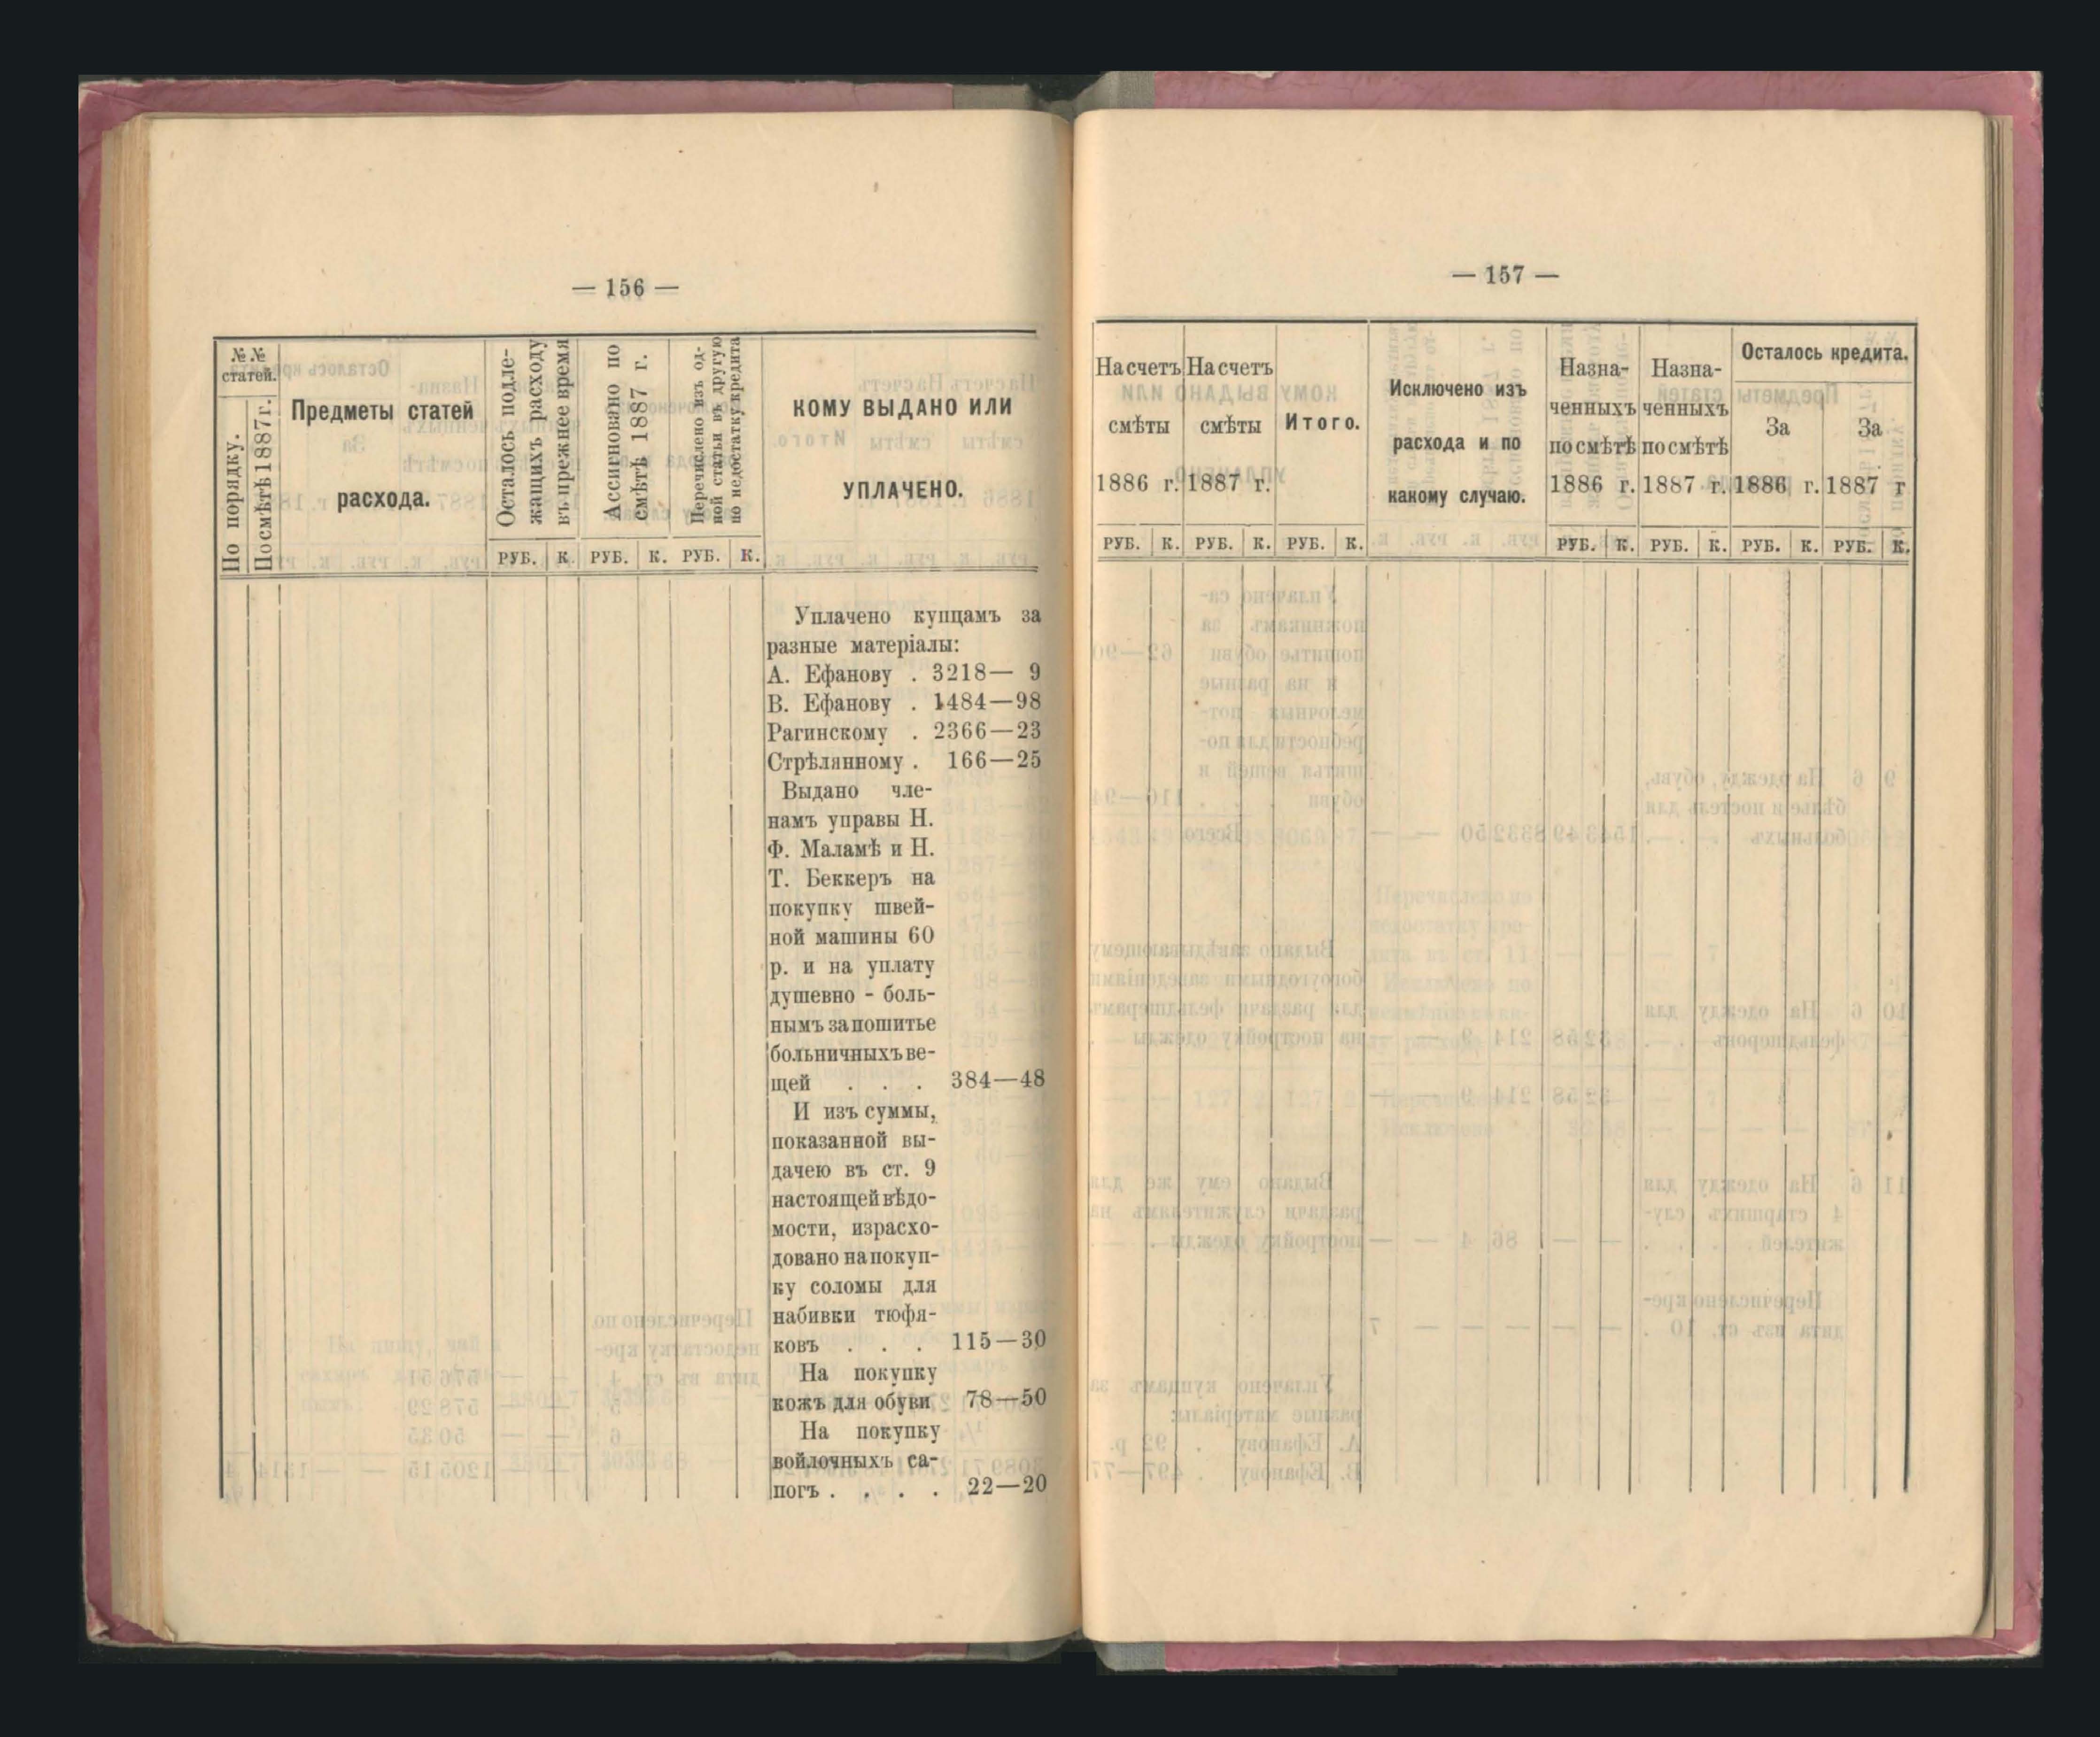 — 156 —
№№
статей.
По порядку.
По смѣтѣ 1887 г.
Предметы статей
расхода.
Осталось подле-
жащихъ расходу
въ прежнее время
Ассигновано по
смѣтѣ 1887 г.
Перечислено изъ од-
ной статьи въ другую
по недостатку кредита
КОМУ ВЫДАНО ИЛИ
УПЛАЧЕНО.
РУБ. К. РУБ. К. РУБ. К.
Уплачено купцамъ за
разные матеріалы:
А. Ефанову . 3218— 9
В. Ефанову . 1484—98
Рагинскому . 2366—23
Стрѣлянному . 166—25
Выдано чле-
намъ управы Н.
Ф. Маламѣ и Н.
Т. Беккеръ на
покупку швей-
ной машины 60
р. и на уплату
душевно - боль-
нымъ за пошитье
больничныхъ ве-
щей . . . 384—48
И изъ суммы,
показанной вы-
дачею въ ст. 9
настоящей вѣдо-
мости, израсхо-
довано на покуп-
ку соломы для
набивки тюфя-
ковъ . . . 115—30
На покупку
кожъ для обуви 78—50
На покупку
войлочныхъ са-
погъ . . . . 22—20
— 157 —
На счетъ
смѣты
1886 г.
На счетъ
смѣты
1887 г.
Итого.
Исключено изъ
расхода и по
какому случаю.
Назна-
ченныхъ
по смѣтѣ
1886 г.
Назна-
ченныхъ
по смѣтѣ
1887 г.
Осталось кредита.
За
1886 г.
За
1887 г
РУБ. К. РУБ. К. РУБ. К. РУБ. К. РУБ. К. РУБ. К. РУБ. К.